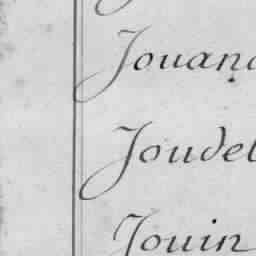 Jouan
Joudel
Jouin